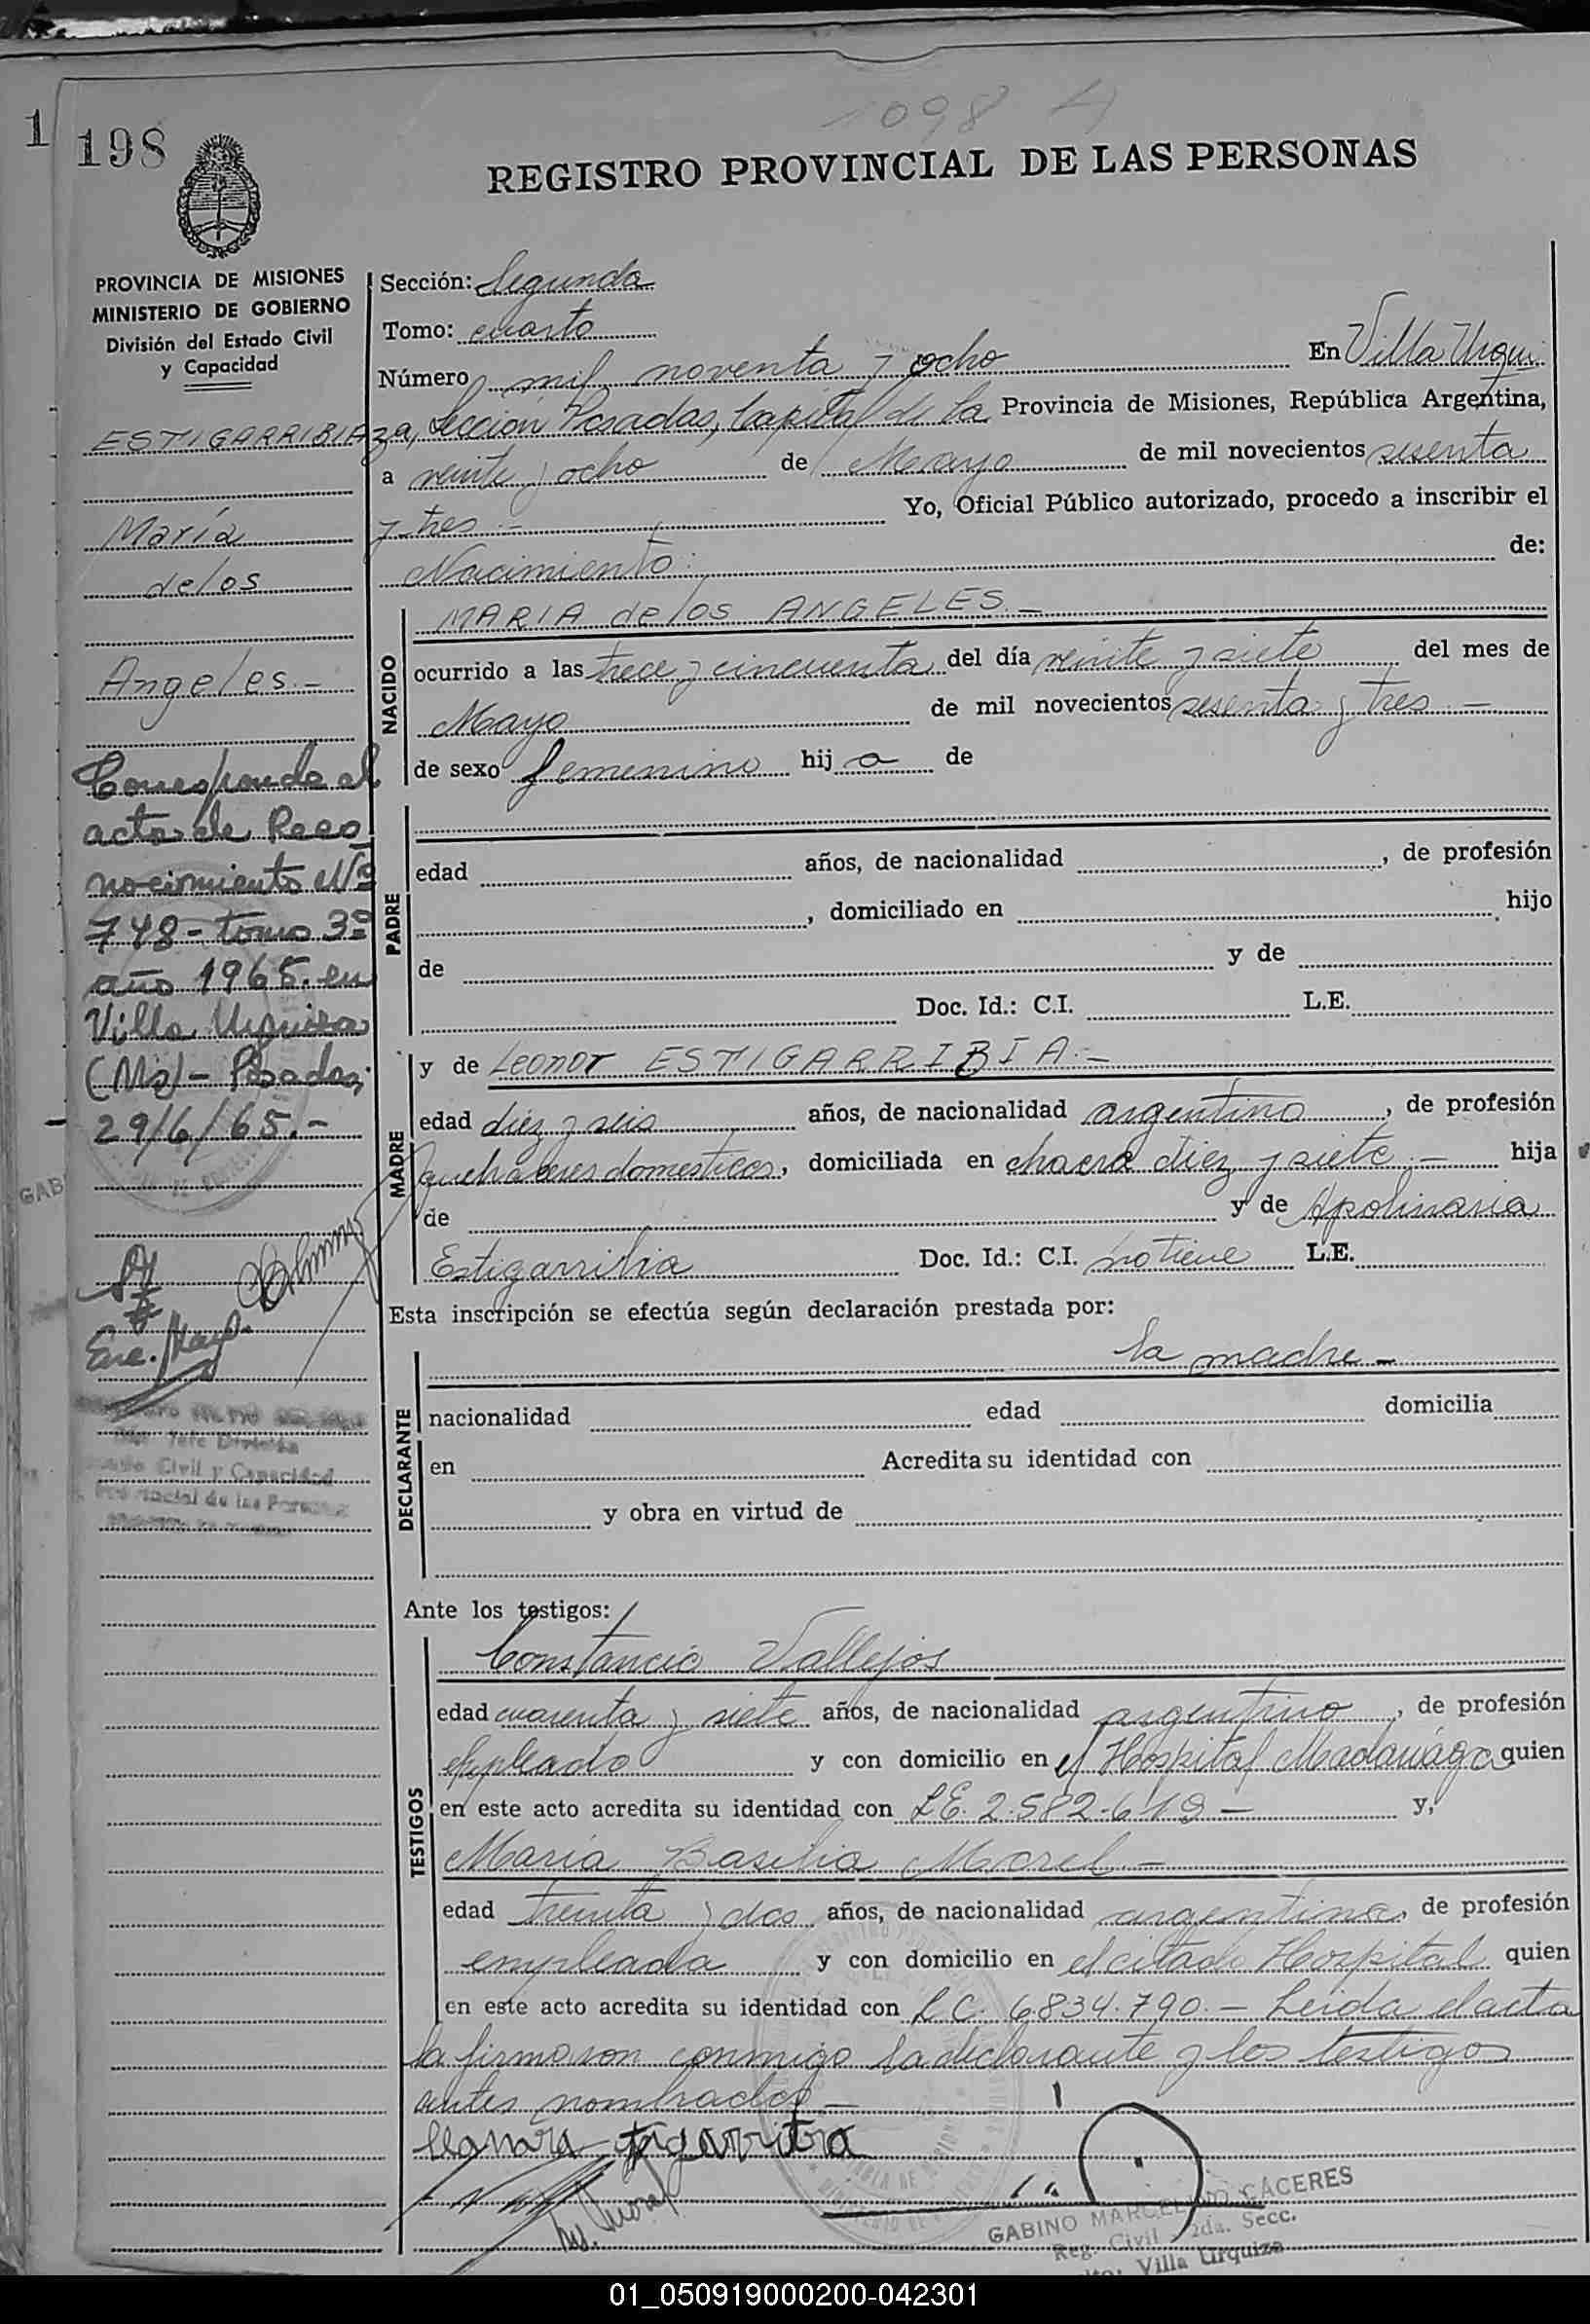 1098
1 198
REGISTRO PROVINCIAL DE LAS PERSONAS
PROVINCIA DE MISIONES
MINISTERIO DE GOBIERNO
División del Estado Civil
y Capacidad
ESTIGARRIBIA
María
de los
Angeles.-
Corresponde al
acta de Reco
nocimiento Nº
748 - tomo 3º
año 1965. en
Villa Urquiza
(Ms) - Posadas,
29/6/65.-
Enc. Desp.
Jefe División
Civil y Capacidad
de las Personas
Sección: Segunda
Tomo: cuarto
Número mil noventa y ocho En Villa Urqui
za, Sección Posadas, Capital de la Provincia de Misiones, República Argentina,
a veinte y ocho de Mayo de mil novecientos sesenta
y tres.- Yo, Oficial Público autorizado, procedo a inscribir el
Nacimiento: de:
NACIDO
MARIA de los ANGELES.-
ocurrido a las trece y cincuenta del día veinte y siete del mes de
Mayo de mil novecientos sesenta y tres.-
de sexo femenino hij a de
PADRE
edad años, de nacionalidad , de profesión
, domiciliado en hijo
de y de
Doc. Id.: C.I. L.E.
MADRE
y de Leonor ESTIGARRIBIA.-
edad diez y seis años, de nacionalidad argentina, de profesión
quehaceres domesticos, domiciliada en chacra diez y siete.- hija
de y de Apolinaria
Estigarribia Doc. Id.: C.I. no tiene L.E.
Esta inscripción se efectúa según declaración prestada por:
DECLARANTE
la madre -
nacionalidad edad domicilia
en Acredita su identidad con
y obra en virtud de
Ante los testigos:
TESTIGOS
Constancio Vallejos
edad cuarenta y siete años, de nacionalidad argentino, de profesión
empleado y con domicilio en el Hospital Madariaga quien
en este acto acredita su identidad con L.E. 2.582.619 - y,
María Basilia Morel.-
edad treinta y dos años, de nacionalidad argentina, de profesión
empleada y con domicilio en el citado Hospital quien
en este acto acredita su identidad con L.C. 6.834.790.- Leida el acta
la firmaron conmigo la declarante y los testigos
antes nombrados.-
GABINO MARCELINO CACERES
Reg. Civil 2da. Secc.
Villa Urquiza
01_050919000200-042301